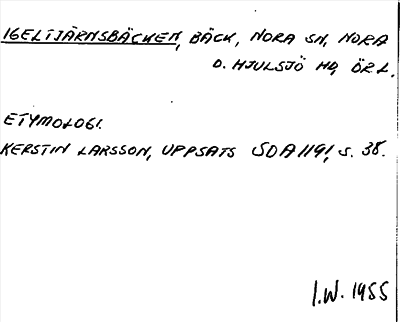 IGELTJÄRNSBÄCKEN, BÄCK, NORA SN, NORA
O. HJULSJÖ HD, ÖR.L.
ETYMOLOGI.
KERSTIN LARSSON, UPPSATS SOA 119, S. 38.
I.W. 1955